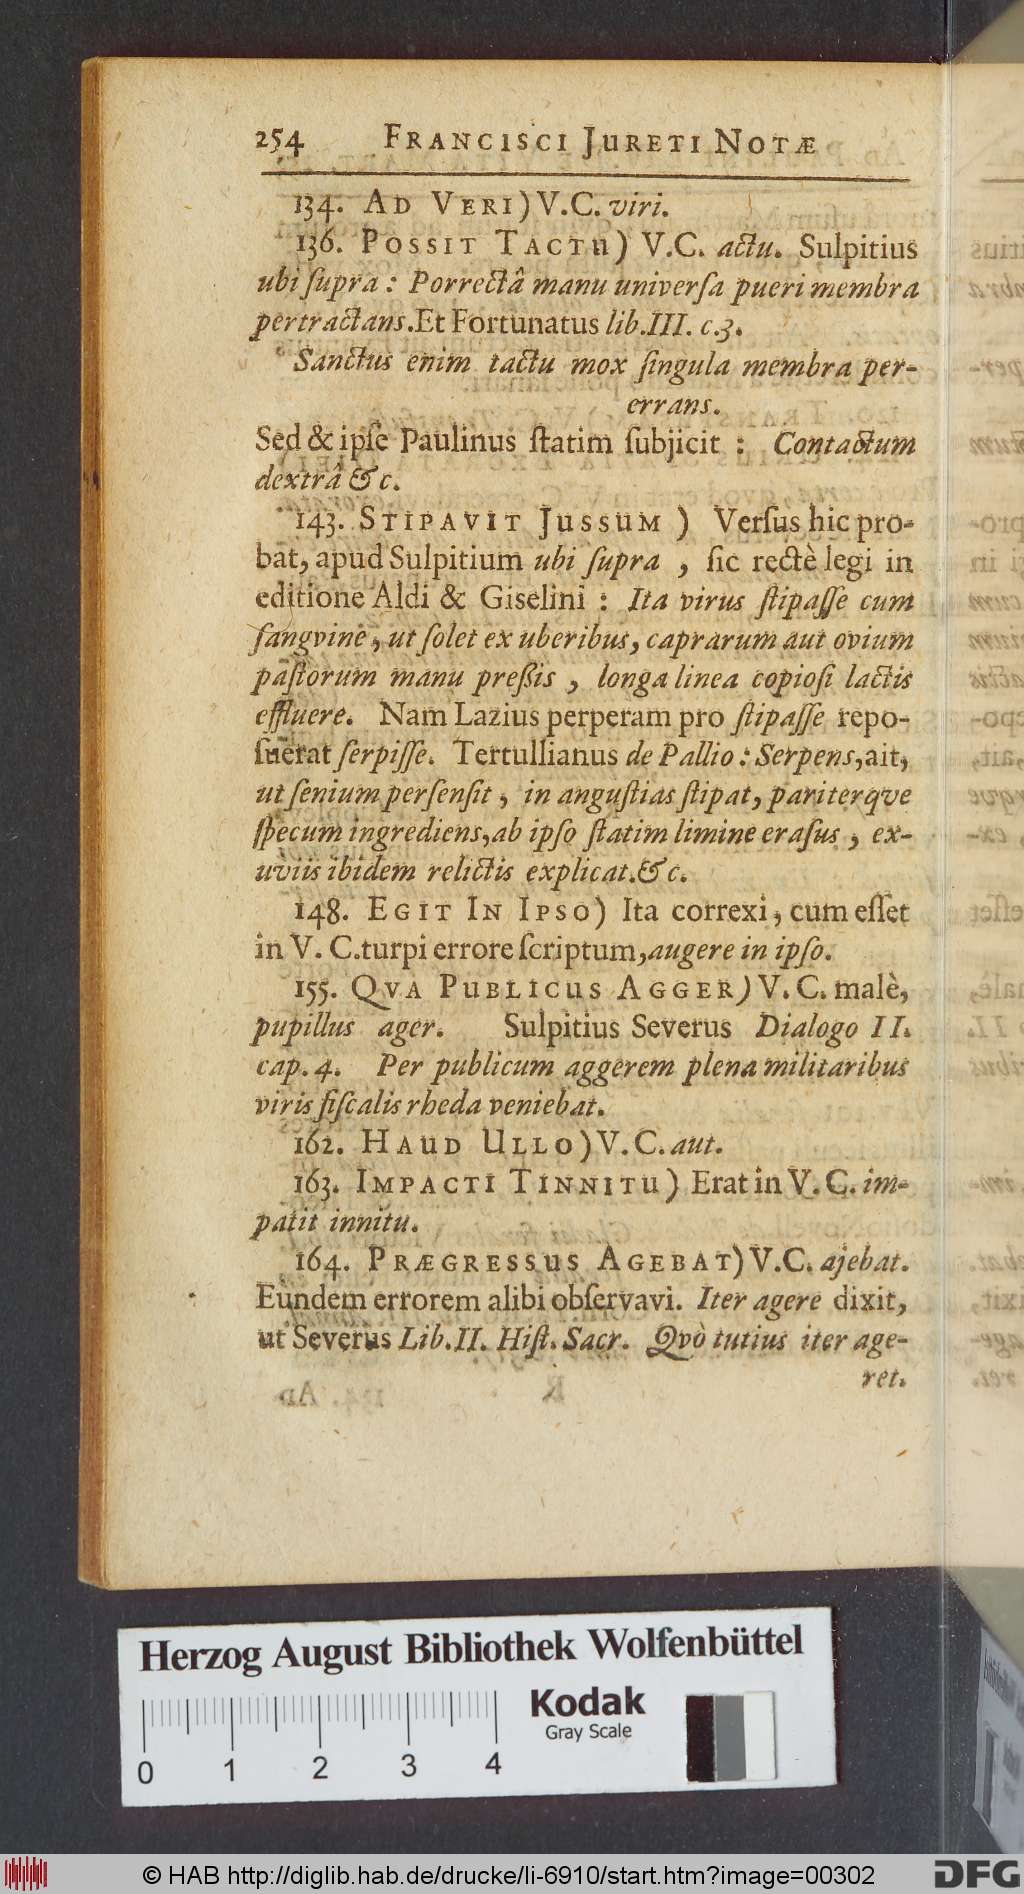 254 FRANCISCI JURETI NOTÆ
134. AD VERI) V.C. viri.
136. POSSIT TACTU) V.C. actu. Sulpitius
ubi ſupra : Porrectâ manu univerſa pueri membra
pertractans. Et Fortunatus lib. III. c. 3.
Sanctus enim tactu mox ſingula membra per-
errans.
Sed & ipſe Paulinus ſtatim ſubjicit : Contactum
dextrâ &c.
143. STIPAVIT JUSSUM ) Verſus hic pro-
bat, apud Sulpitium ubi ſupra , ſic rectè legi in
editione Aldi & Giselini : Ita virus ſtipaſſe cum
ſangvine, ut ſolet ex uberibus, caprarum aut ovium
paſtorum manu preßis , longa linea copioſi lactis
effluere. Nam Lazius perperam pro ſtipaſſe repo-
ſuerat ſerpiſſe. Tertullianus de Pallio : Serpens, ait,
ut ſenium perſenſit , in anguſtias ſtipat, pariterqve
ſpecum ingrediens, ab ipſo ſtatim limine eraſus , ex-
uviis ibidem relictis explicat. &c.
148. EGIT IN IPSO) Ita correxi, cum eſſet
in V. C. turpi errore ſcriptum, augere in ipſo.
155. QVA PUBLICUS AGGER) V. C. malè,
pupillus ager. Sulpitius Severus Dialogo II.
cap. 4. Per publicum aggerem plena militaribus
viris fiſcalis rheda veniebat.
162. HAUD ULLO) V. C. aut.
163. IMPACTI TINNITU) Erat in V. C. im-
patit innitu.
164. PRÆGRESSUS AGEBAT) V.C. ajebat.
Eundem errorem alibi obſervavi. Iter agere dixit,
ut Severus Lib. II. Hiſt. Sacr. Qvò tutius iter age-
ret.
Herzog August Bibliothek Wolfenbüttel
Kodak
Gray Scale
0 1 2 3 4
© HAB http://diglib.hab.de/drucke/li-6910/start.htm?image=00302
DFG